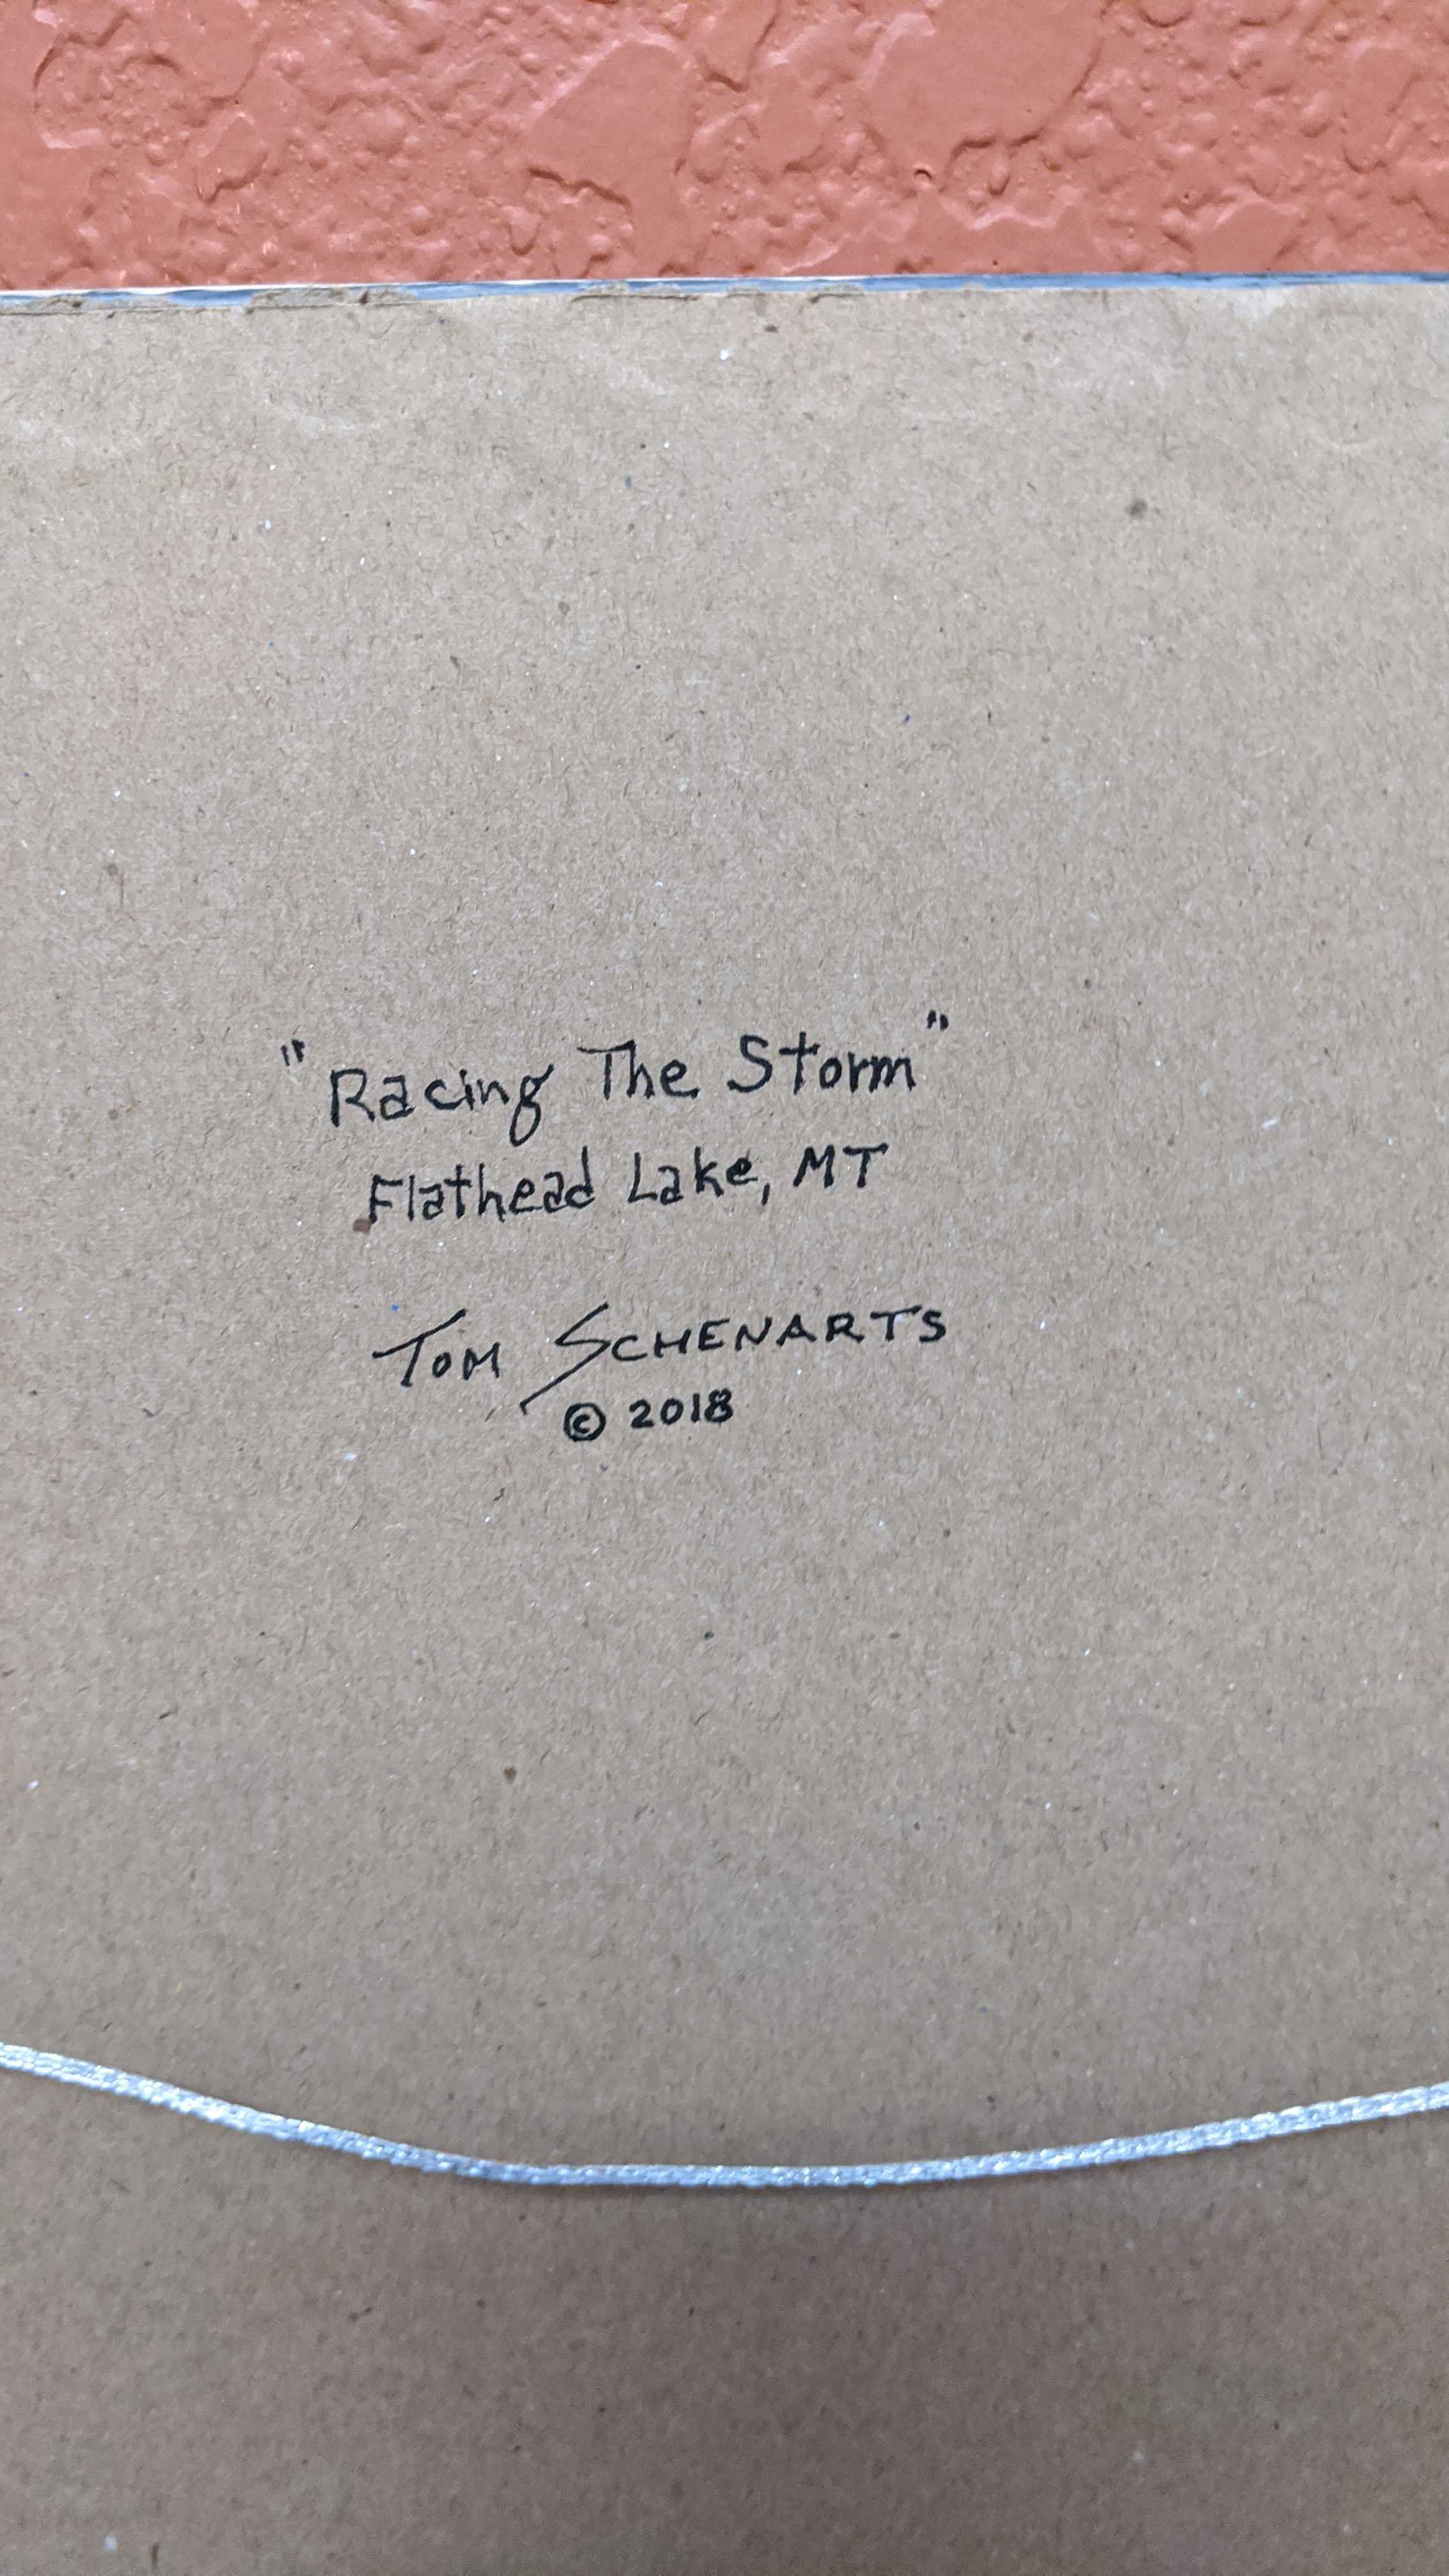 "Racing The Storm"
Flathead Lake, MT
Tom Schenarts
© 2018